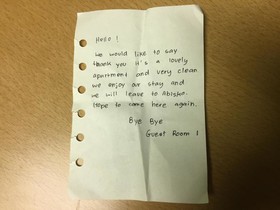 Hello !
We would like to say
thank you it's a lovely
apartment and very clean
we enjoy our stay and
we will leave to Abisko.
Hope to come here again.
Bye Bye
Guest Room 1